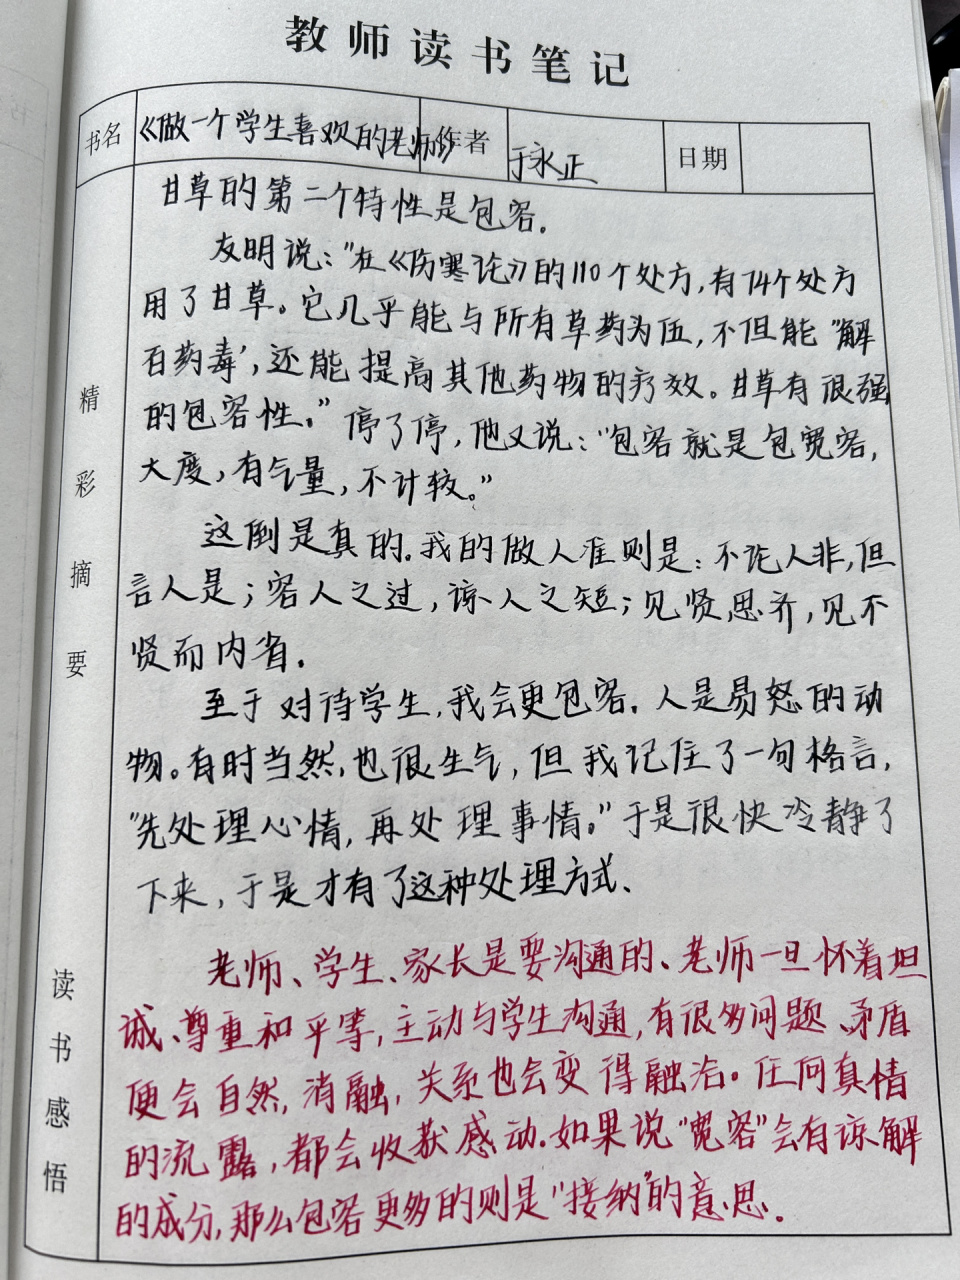 教师读书笔记
书名 《做一个学生喜欢的老师》 作者 于永正 日期
精彩摘要
甘草的第二个特性是包容.
友明说:"在《伤寒论》的110个处方,有74个处方
用了甘草。它几乎能与所有草药为伍,不但能"解
石药毒',还能提高其他药物的疗效。甘草有很强
的包容性."停了停,他又说:"包容就是包宽容,
大度,有气量,不计较。"
这倒是真的.我的做人准则是:不论人非,但
言人是;容人之过,谅人之短;见贤思齐,见不
贤而内省.
至于对待学生,我会更包容.人是易怒的动
物。有时当然,也很生气,但我记住了一句格言,
"先处理心情,再处理事情。"于是很快冷静了
下来,于是才有了这种处理方式、
读书感悟
老师、学生、家长是要沟通的、老师一旦怀着坦
诚、尊重和平等,主动与学生沟通,有很多问题、矛盾
便会自然,消融,关系也会变得融洽。任何真情
的流露,都会收获感动.如果说"宽容"会有谅解
的成分,那么包容更多的则是"接纳"的意思.